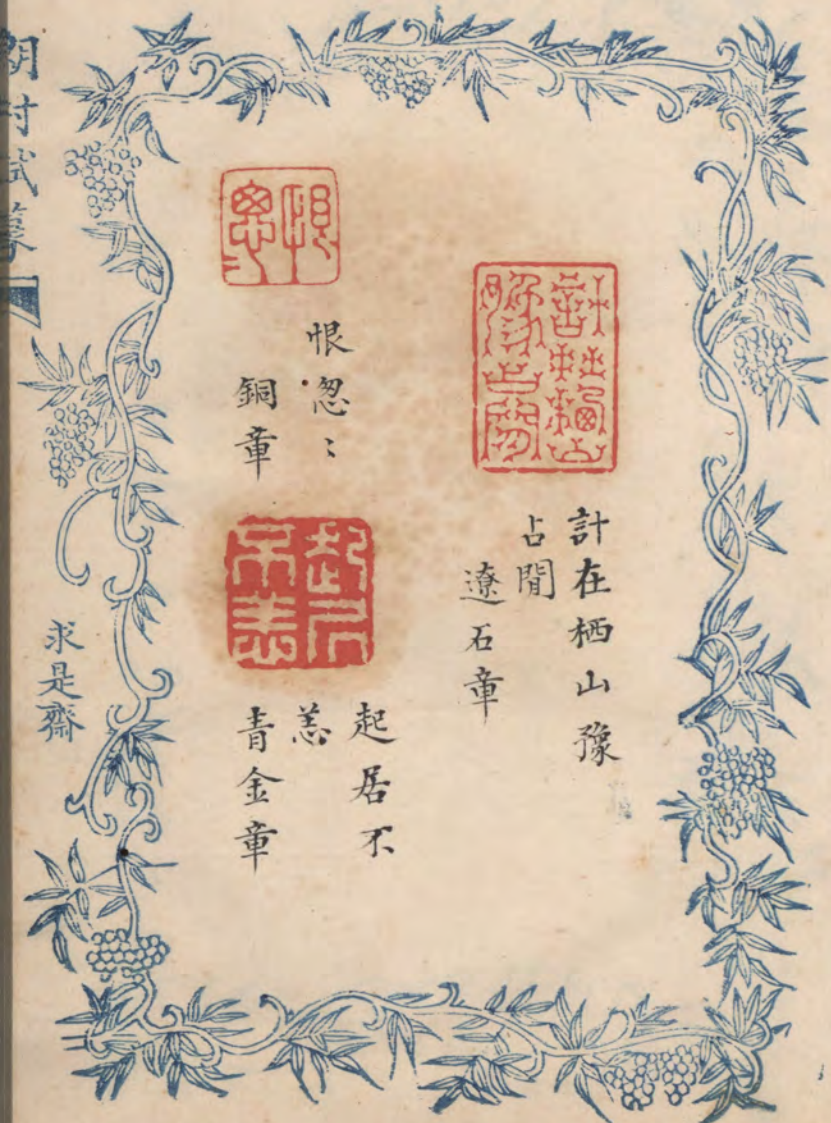 計在栖山豫
占閒
遼石章
恨怱〻
銅章
起居不
恙
青金章
求是齋